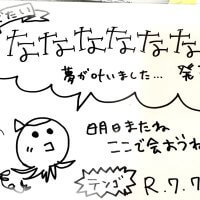 たい
なななななな
夢が叶いました… 発
明日またね
ここで会おうね
テンゴ
R.7.7